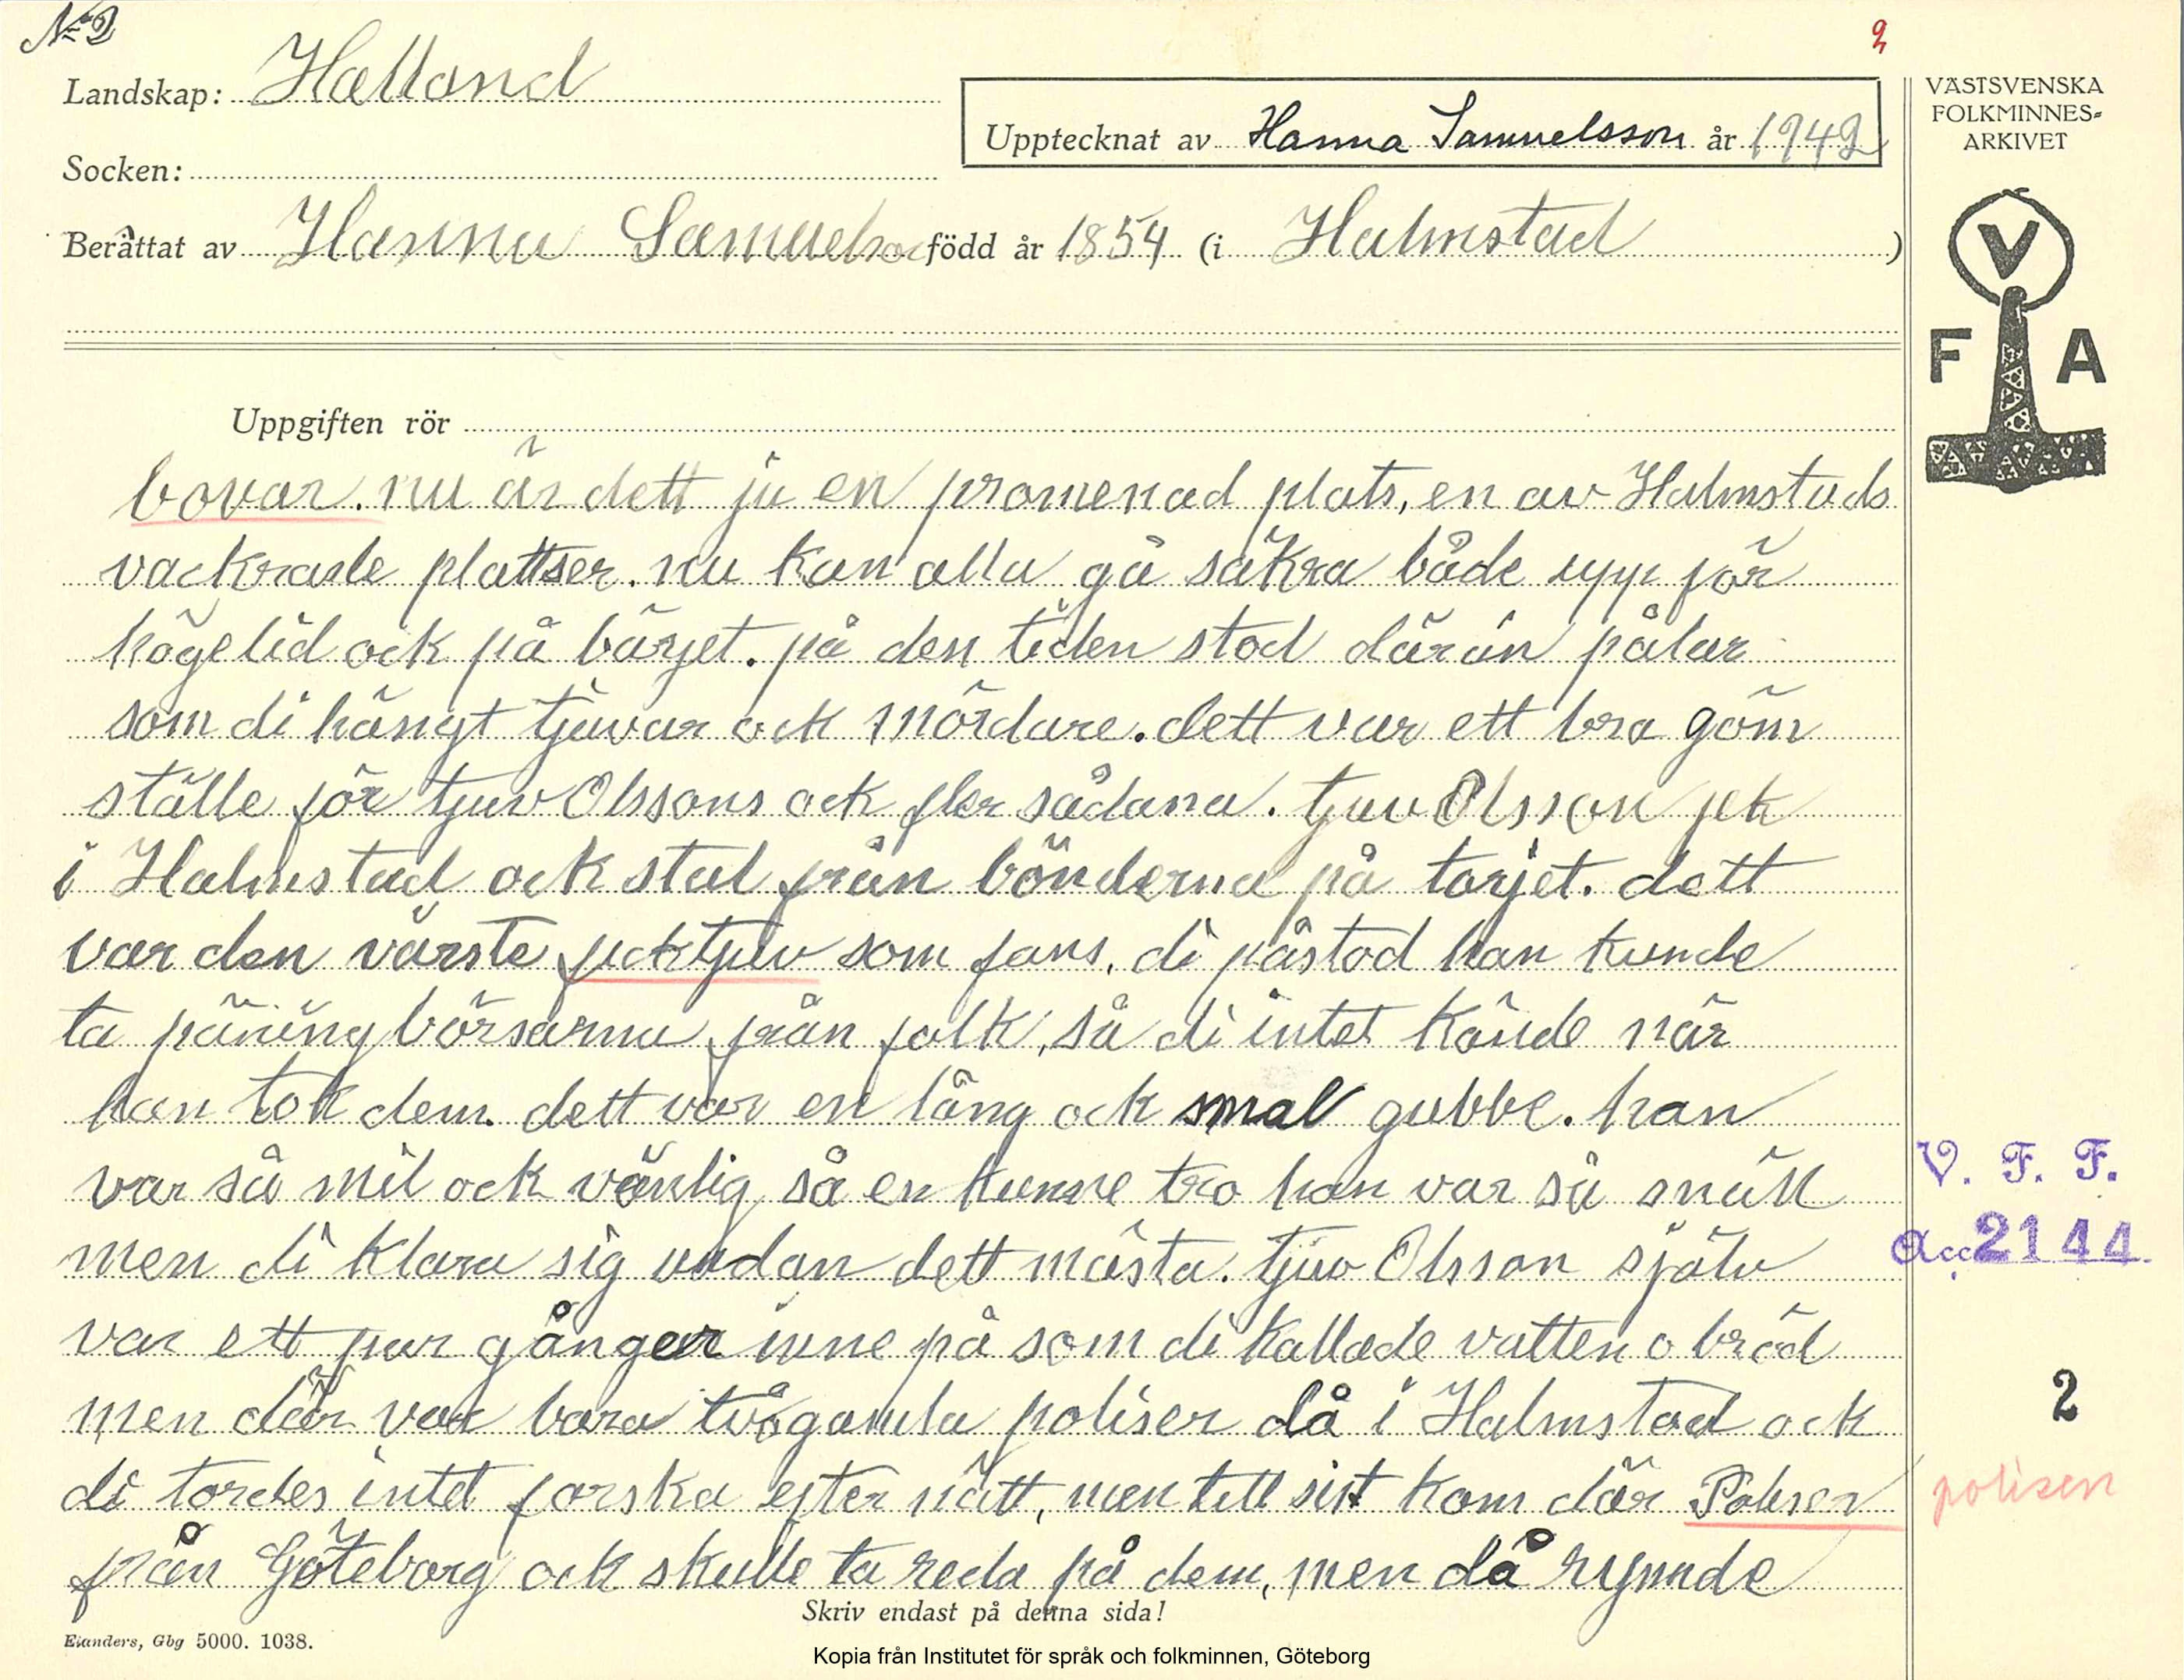 No 2
2
Landskap: Halland
Upptecknat av Hanna Samuelsson år 1942
Socken:
Berättat av Hanna Samuelson född år 1854 (i Halmstad )
VÄSTSVENSKA
FOLKMINNES-
ARKIVET
V
F A
Uppgiften rör
bovar. nu är dett ju en promenad plats, en av Halmstads
vackraste plattser. nu kan alla gå säkra både upp för
högelid ock på bärjet. på den tiden stod där än pålar
som di hängt tjuvar ock mördare. dett var ett bra göm
ställe för tjuv Olssons ock fler sådana. tjuv Olsson jek
i Halmstad ock stal från bönderna på torjet. dett
var den värste ficktjuv som fans. di påstod han kunde
ta päningbörsarna från folk, så di intet kände när
han tok dem. dett var en lång ock smal gubbe. han
var så mil ock vänlig så en kunne tro han var så snäll
men di klara sig undan dett mästa. tjuv Olsson själv
var ett par gånger inne på som di kallade vatten o bröd
men där var bara två gamla poliser då i Halmstad ock
di tordes intet forska efter nått, men till sist kom där Polisen
från Göteborg ock skulle ta reda på dem, men då rymnde
V. F. F.
Acc 2144
2
polisen
Skriv endast på denna sida!
Elanders, Gbg 5000. 1038.
Kopia från Institutet för språk och folkminnen, Göteborg